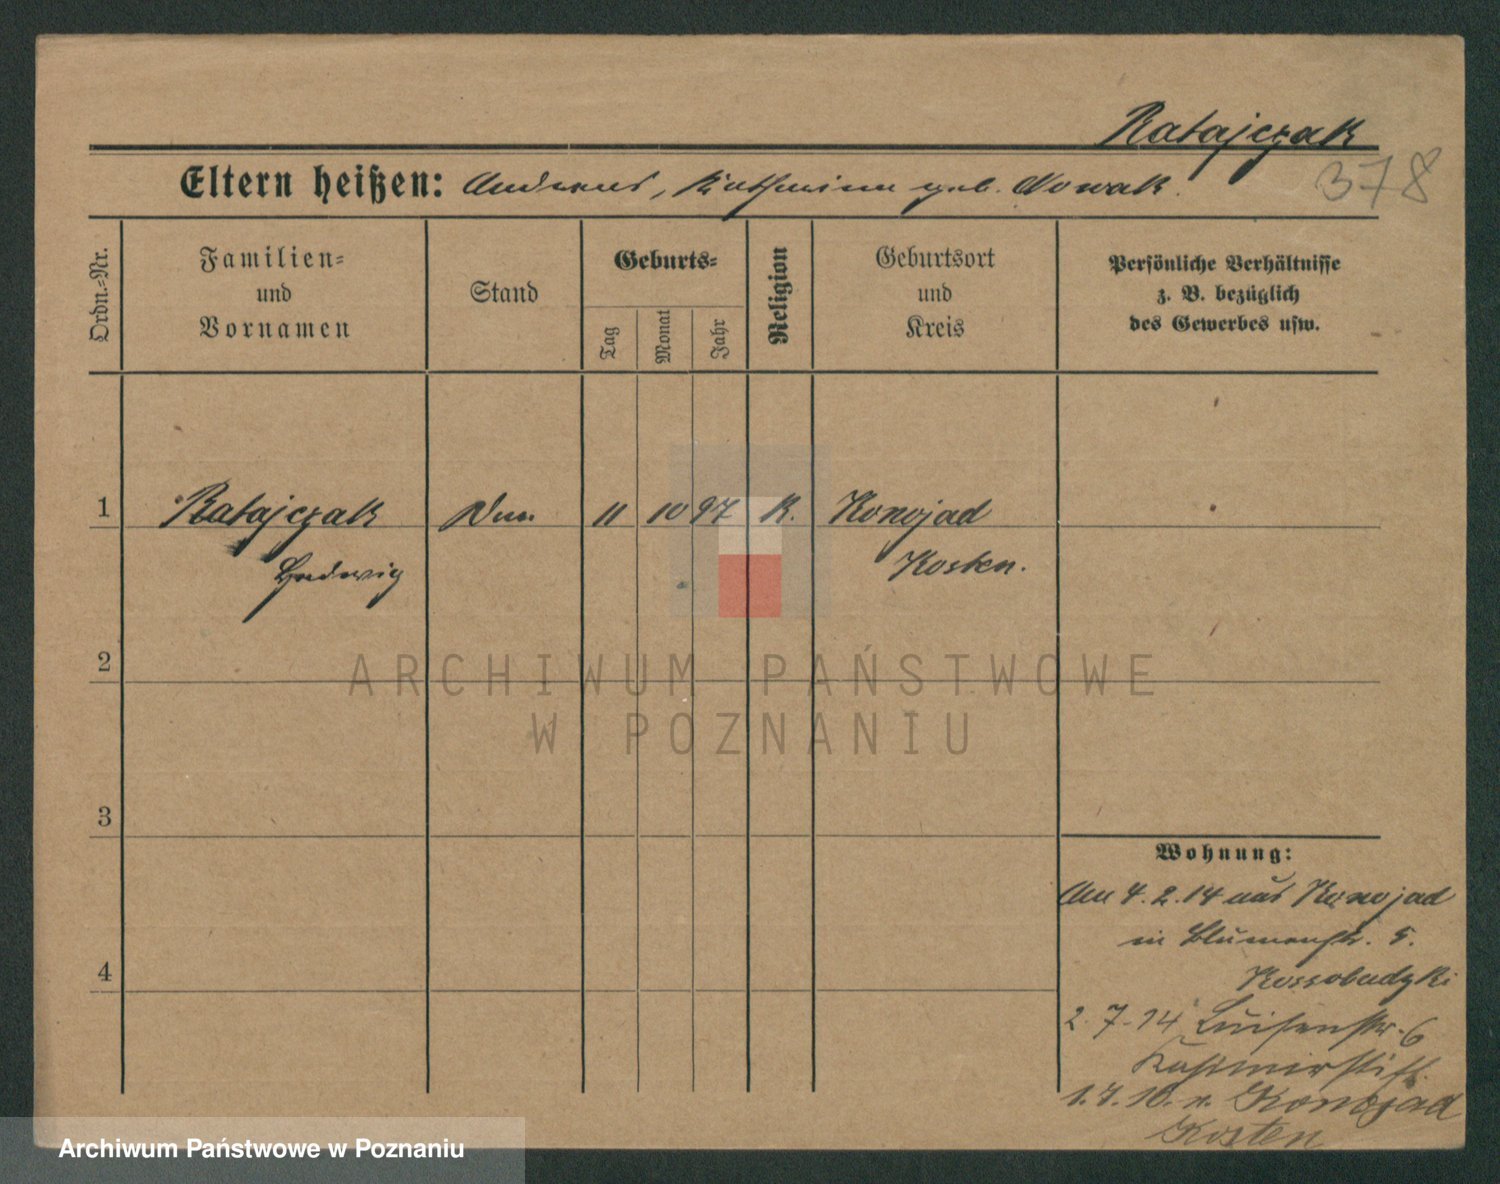 Ratajczak
378
Eltern heißen: Andreas, Katharina geb. Nowak.
Ordn.-Nr.
Familien-
und
Vornamen
Stand
Geburts-
Tag
Monat
Jahr
Religion
Geburtsort
und
Kreis
Persönliche Verhältnisse
z. B. bezüglich
des Gewerbes usw.
1 Ratajczak 11 10 97 K. Konojad
Ludwig Kosten.
2
3
4
Wohnung:
Am 4.2.14 aus Konojad
in Blumenstr. 5.
Kossobudzki
2.7.14 Luisenstr. 6
n. Konojad
Kosten
ARCHIWUM PAŃSTWOWE
W POZNANIU
Archiwum Państwowe w Poznaniu